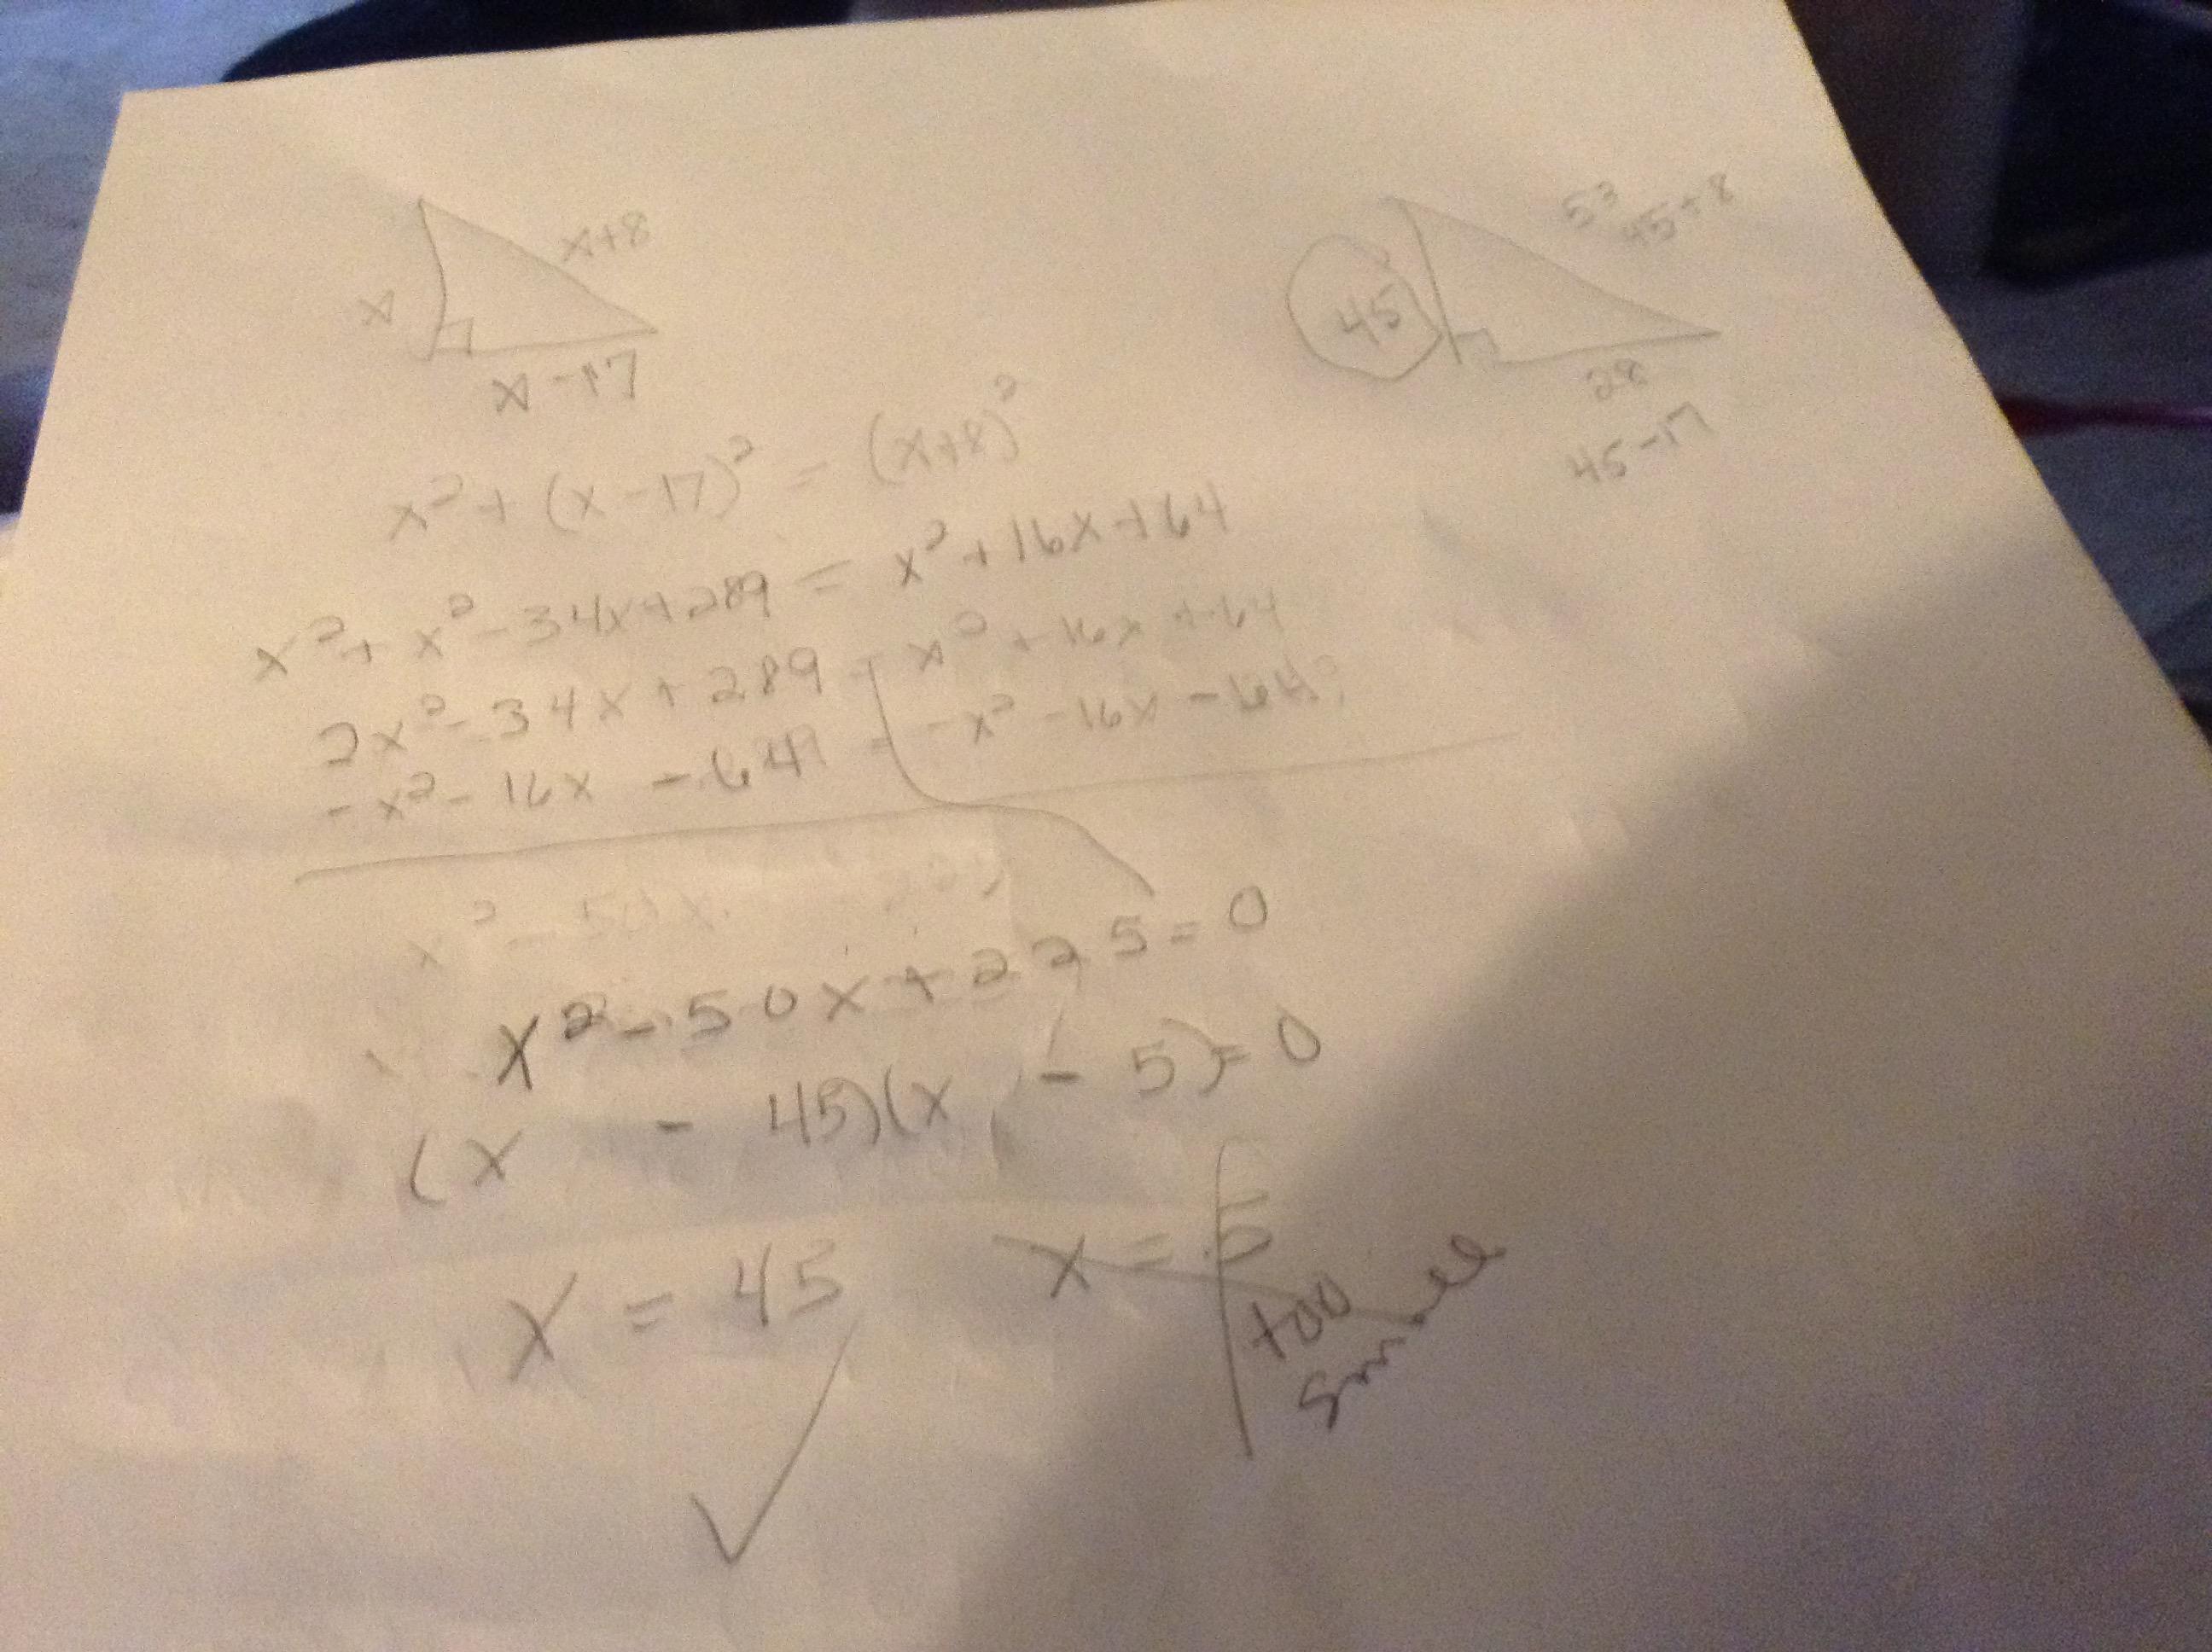 x+8
x
x-17
53
45+8
45
28
45-17
x²+(x-17)² = (x+8)²
x²+x²-34x+289 = x²+16x+64
2x²-34x+289 = x²+16x+64
-x²-16x -64 = -x²-16x-64
x²-50x
x²-50x+225=0
(x - 45)(x - 5)=0
x = 45 x = 5
too
small